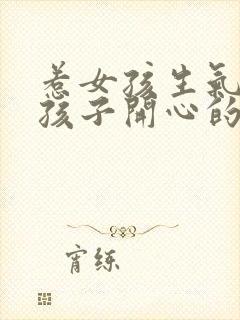 惹女孩生氣
孩子開心的
宵练